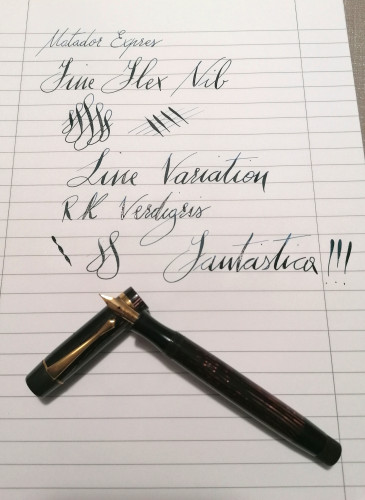 Matador Expres
Fine Flex Nib
Line Variation
R&K Verdigris
Fantástica!!!